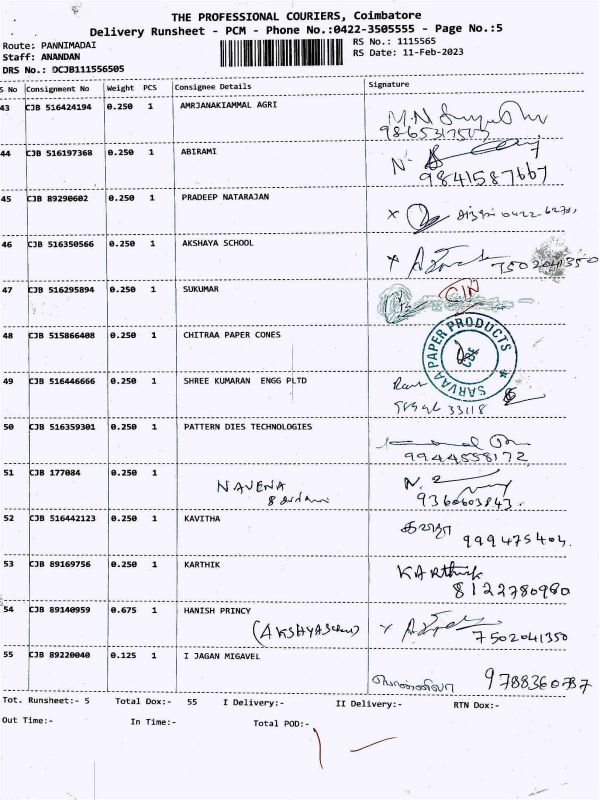 THE PROFESSIONAL COURIERS, Coimbatore
Delivery Runsheet - PCM - Phone No.:0422-3505555 - Page No.:5
Route: PANNIMADAI RS No.: 1115565
Staff: ANANDAN RS Date: 11-Feb-2023
DRS No.: DCJB111556505
S No Consignment No Weight PCS Consignee Details Signature
43 CJB 516424194 0.250 1 AMRJANAKIAMMAL AGRI
44 CJB 516197368 0.250 1 ABIRAMI
9841587667
45 CJB 89290602 0.250 1 PRADEEP NATARAJAN
46 CJB 516350566 0.250 1 AKSHAYA SCHOOL
7502041350
47 CJB 516295894 0.250 1 SUKUMAR CIN
48 CJB 515866408 0.250 1 CHITRAA PAPER CONES
SARVAA PAPER PRODUCTS CBE
49 CJB 516446666 0.250 1 SHREE KUMARAN ENGG PLTD
33118
50 CJB 516359301 0.250 1 PATTERN DIES TECHNOLOGIES
9944558172
51 CJB 177084 0.250 1
NAVENA
9360603843.
52 CJB 516442123 0.250 1 KAVITHA
கவிதா
999475404.
53 CJB 89169756 0.250 1 KARTHIK
KARthik
8122780980
54 CJB 89140959 0.675 1 HANISH PRINCY
(AKSHYA School) 7502041350
55 CJB 89220040 0.125 1 I JAGAN MIGAVEL
9788360787
Tot. Runsheet:- 5 Total Dox:- 55 I Delivery:- II Delivery:- RTN Dox:-
Out Time:- In Time:- Total POD:-